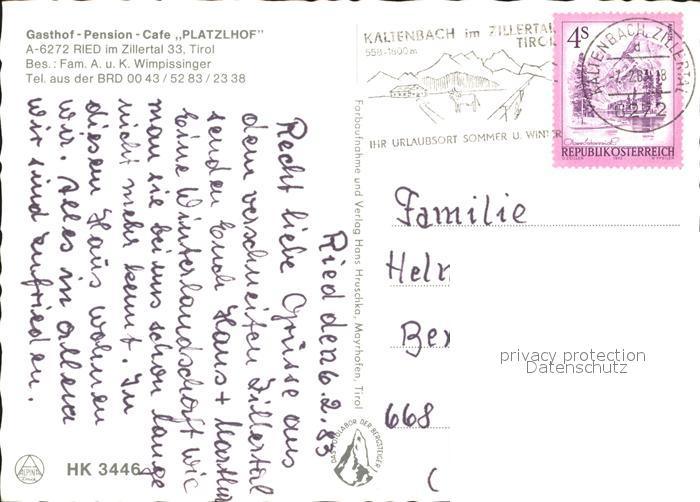 Gasthof - Pension - Cafe „PLATZLHOF"
A-6272 RIED im Zillertal 33, Tirol
Bes.: Fam. A. u. K. Wimpissinger
Tel. aus der BRD 00 43 / 52 83 / 23 38
Ried den 6.2.83
Recht liebe Grüsse aus
dem verschneiten Zillertal
senden Euch Hans + Martha
Eine Winterlandschaft wie
man sie bei uns schon lange
nicht mehr kennt. In
diesem Haus wohnen
wir. Alles in allem
wir sind zufrieden.
HK 3446
ALPINA
Farbaufnahme und Verlag Hans Hruschka, Mayrhofen, Tirol
DAS FOTOLABOR DER BERGSTEIGER
KALTENBACH im ZILLERTAL
TIROL
558-1800m
IHR URLAUBSORT SOMMER U. WINTER
KALTENBACH, ZILLERTAL
6272
4S
REPUBLIK ÖSTERREICH
Familie
Hel
Be
668
privacy protection
Datenschutz